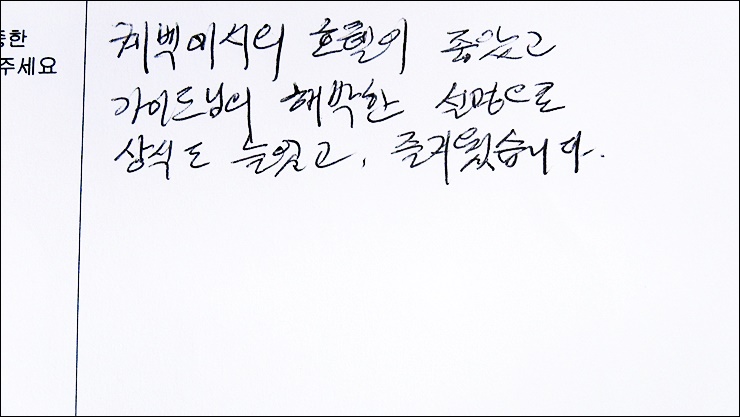 한
주세요
퀘벡에서의 호텔이 좋았고
가이드님의 해박한 설명으로
상식도 늘었고, 즐거웠습니다.